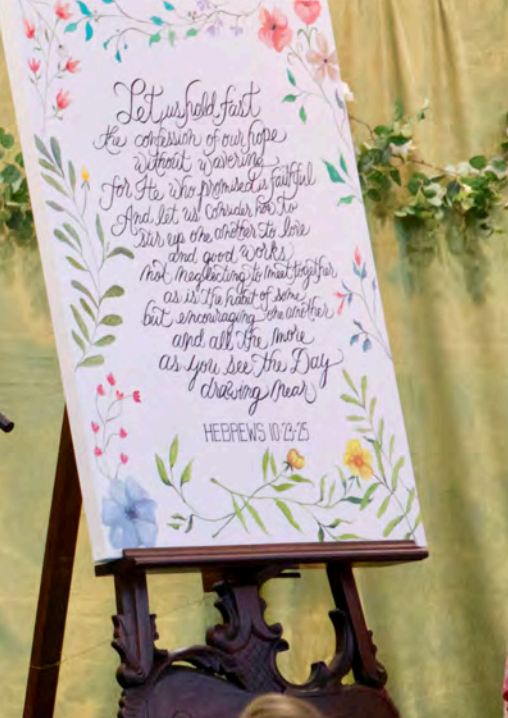 Let us hold fast
the confession of our hope
without wavering
for He who promised is faithful
And let us consider how to
stir up one another to love
and good works
not neglecting to meet together
as is the habit of some
but encouraging one another
and all the more
as you see the Day
drawing near
HEBREWS 10:23-25